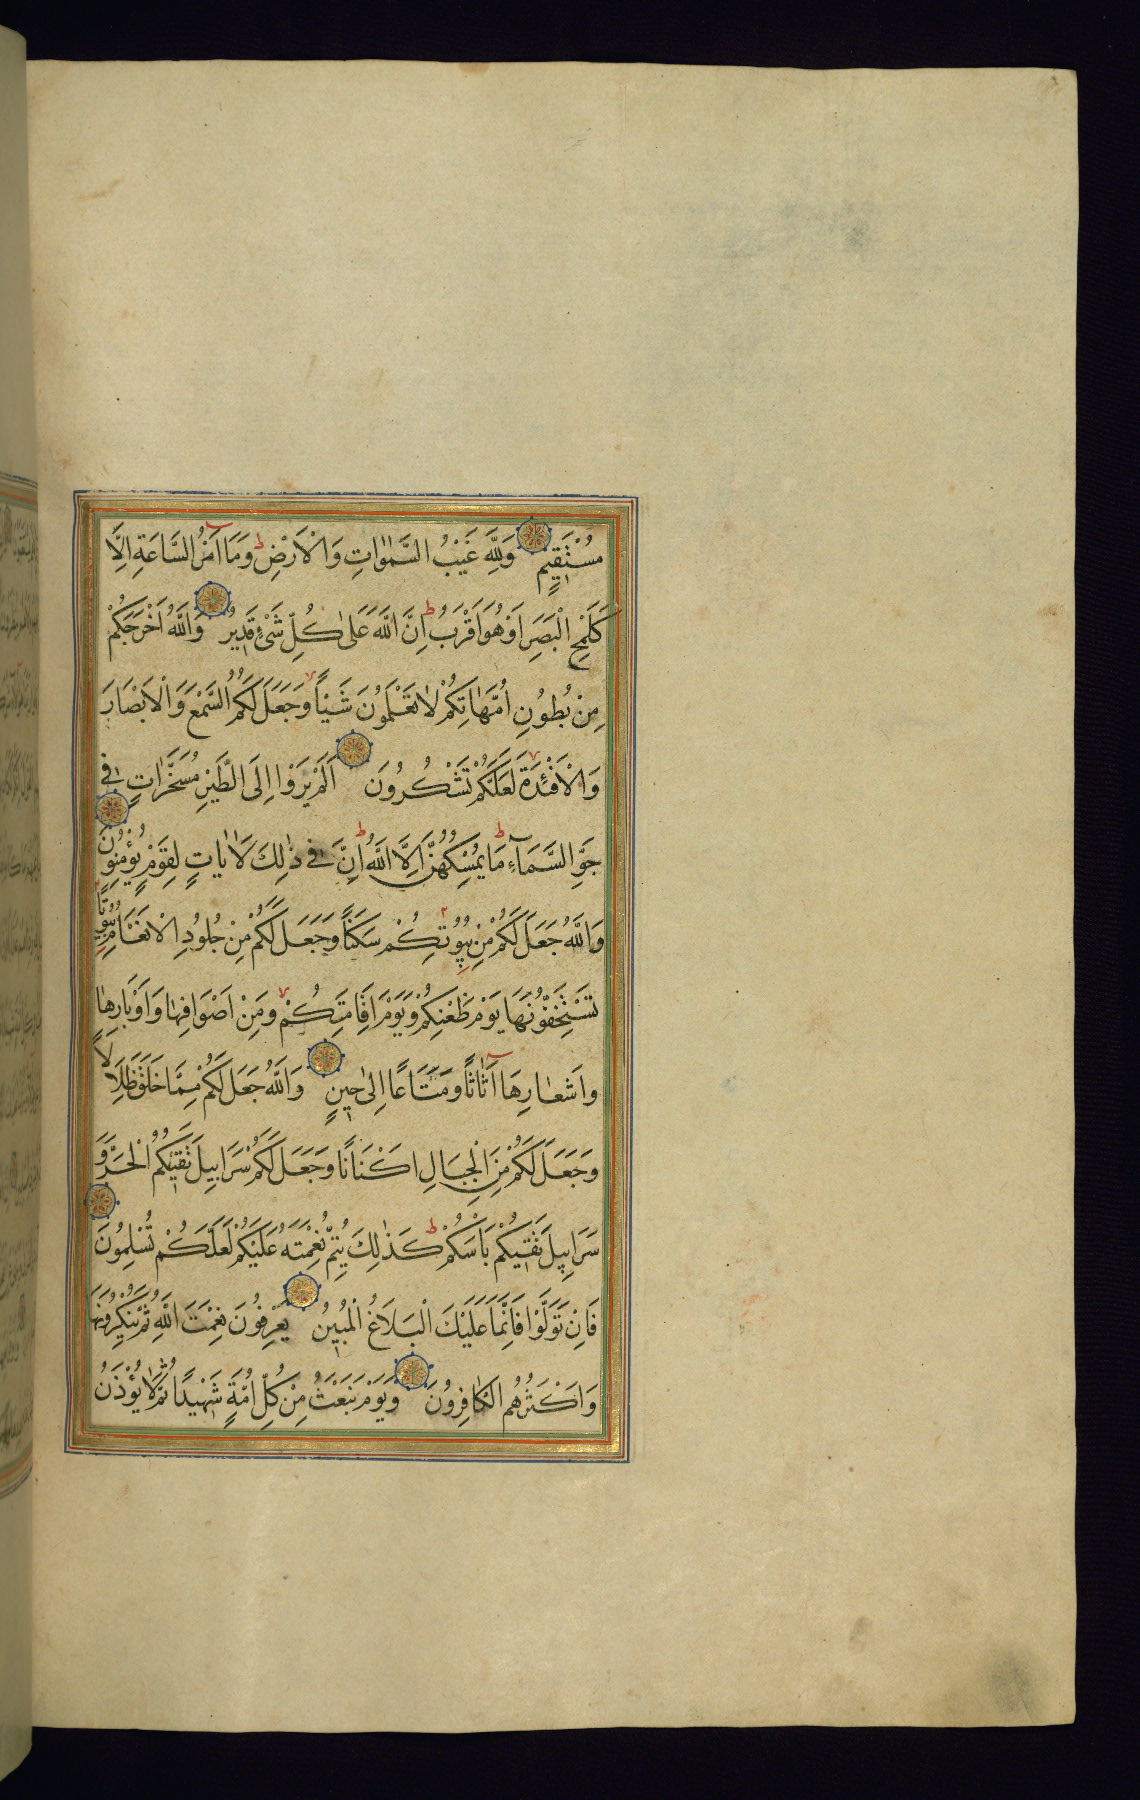 مُسْتَقِيمٍ وَلِلّٰهِ غَيْبُ السَّمٰوَاتِ وَالْاَرْضِ ط وَمَا اَمْرُ السَّاعَةِ اِلَّا
كَلَمْحِ الْبَصَرِ اَوْ هُوَ اَقْرَبُ ط اِنَّ اللّٰهَ عَلٰى كُلِّ شَىْءٍ قَدِيرٌ وَاللّٰهُ اَخْرَجَكُمْ
مِنْ بُطُونِ اُمَّهَاتِكُمْ لَا تَعْلَمُونَ شَيْئًا وَجَعَلَ لَكُمُ السَّمْعَ وَالْاَبْصَارَ
وَالْاَفْئِدَةَ لَعَلَّكُمْ تَشْكُرُونَ اَلَمْ يَرَوْا اِلَى الطَّيْرِ مُسَخَّرَاتٍ فِى
جَوِّ السَّمَآءِ ط مَا يُمْسِكُهُنَّ اِلَّا اللّٰهُ ط اِنَّ فِى ذٰلِكَ لَاٰيَاتٍ لِقَوْمٍ يُؤْمِنُونَ
وَاللّٰهُ جَعَلَ لَكُمْ مِنْ بُيُوتِكُمْ سَكَنًا وَجَعَلَ لَكُمْ مِنْ جُلُودِ الْاَنْعَامِ بُيُوتًا
تَسْتَخِفُّونَهَا يَوْمَ ظَعْنِكُمْ وَيَوْمَ اِقَامَتِكُمْ وَمِنْ اَصْوَافِهَا وَاَوْبَارِهَا
وَاَشْعَارِهَا اَثَاثًا وَمَتَاعًا اِلٰى حِينٍ وَاللّٰهُ جَعَلَ لَكُمْ مِمَّا خَلَقَ ظِلَالًا
وَجَعَلَ لَكُمْ مِنَ الْجِبَالِ اَكْنَانًا وَجَعَلَ لَكُمْ سَرَابِيلَ تَقِيكُمُ الْحَرَّ وَ
سَرَابِيلَ تَقِيكُمْ بَاْسَكُمْ ط كَذٰلِكَ يُتِمُّ نِعْمَتَهُ عَلَيْكُمْ لَعَلَّكُمْ تُسْلِمُونَ
فَاِنْ تَوَلَّوْا فَاِنَّمَا عَلَيْكَ الْبَلَاغُ الْمُبِينُ يَعْرِفُونَ نِعْمَتَ اللّٰهِ ثُمَّ يُنْكِرُونَهَا
وَاَكْثَرُهُمُ الْكَافِرُونَ وَيَوْمَ نَبْعَثُ مِنْ كُلِّ اُمَّةٍ شَهِيدًا ثُمَّ لَا يُؤْذَنُ